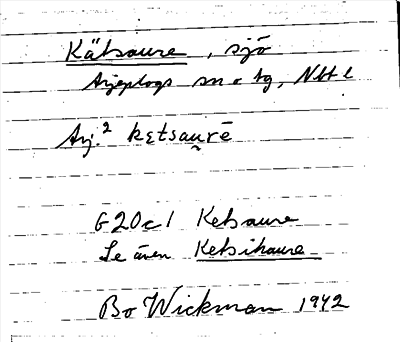 Kätsaure, sjö
Arjeplogs sn o tg, Nbt l
Arj.² kɛtsau̯rē
G20c1 Ketsaure
Se även Ketsihaure
Bo Wickman 1942